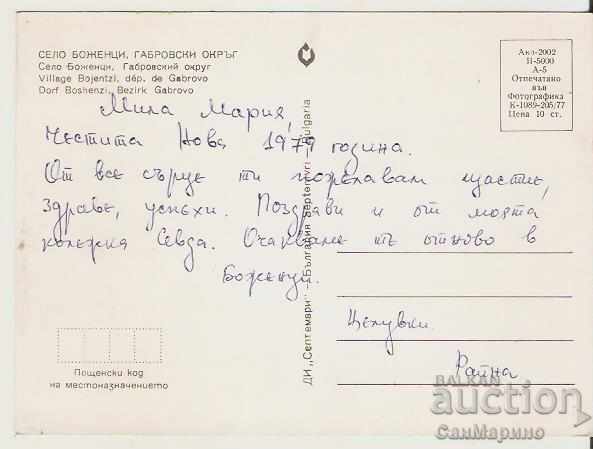 СЕЛО БОЖЕНЦИ, ГАБРОВСКИ ОКРЪГ
Село Боженци, Габровский округ
Village Bojentzi, dép. de Gabrovo
Dorf Boshenzi, Bezirk Gabrovo
Ако-2002
II-5000
А-5
Отпечатано
във
Фотографика
К-1089-205/77
Цена 10 ст.
Мила Мария,
Честита Нова 1979 година.
От все сърце ти пожелавам щастие,
здраве, успехи. Поздрави и от моята
колежка Севда. Очакваме те отново в
Боженци.
Целувки
Райна
ДИ „Септември" - България Septemvri Bulgaria
Пощенски код
на местоназначението
BALKAN
auction
СанМарино